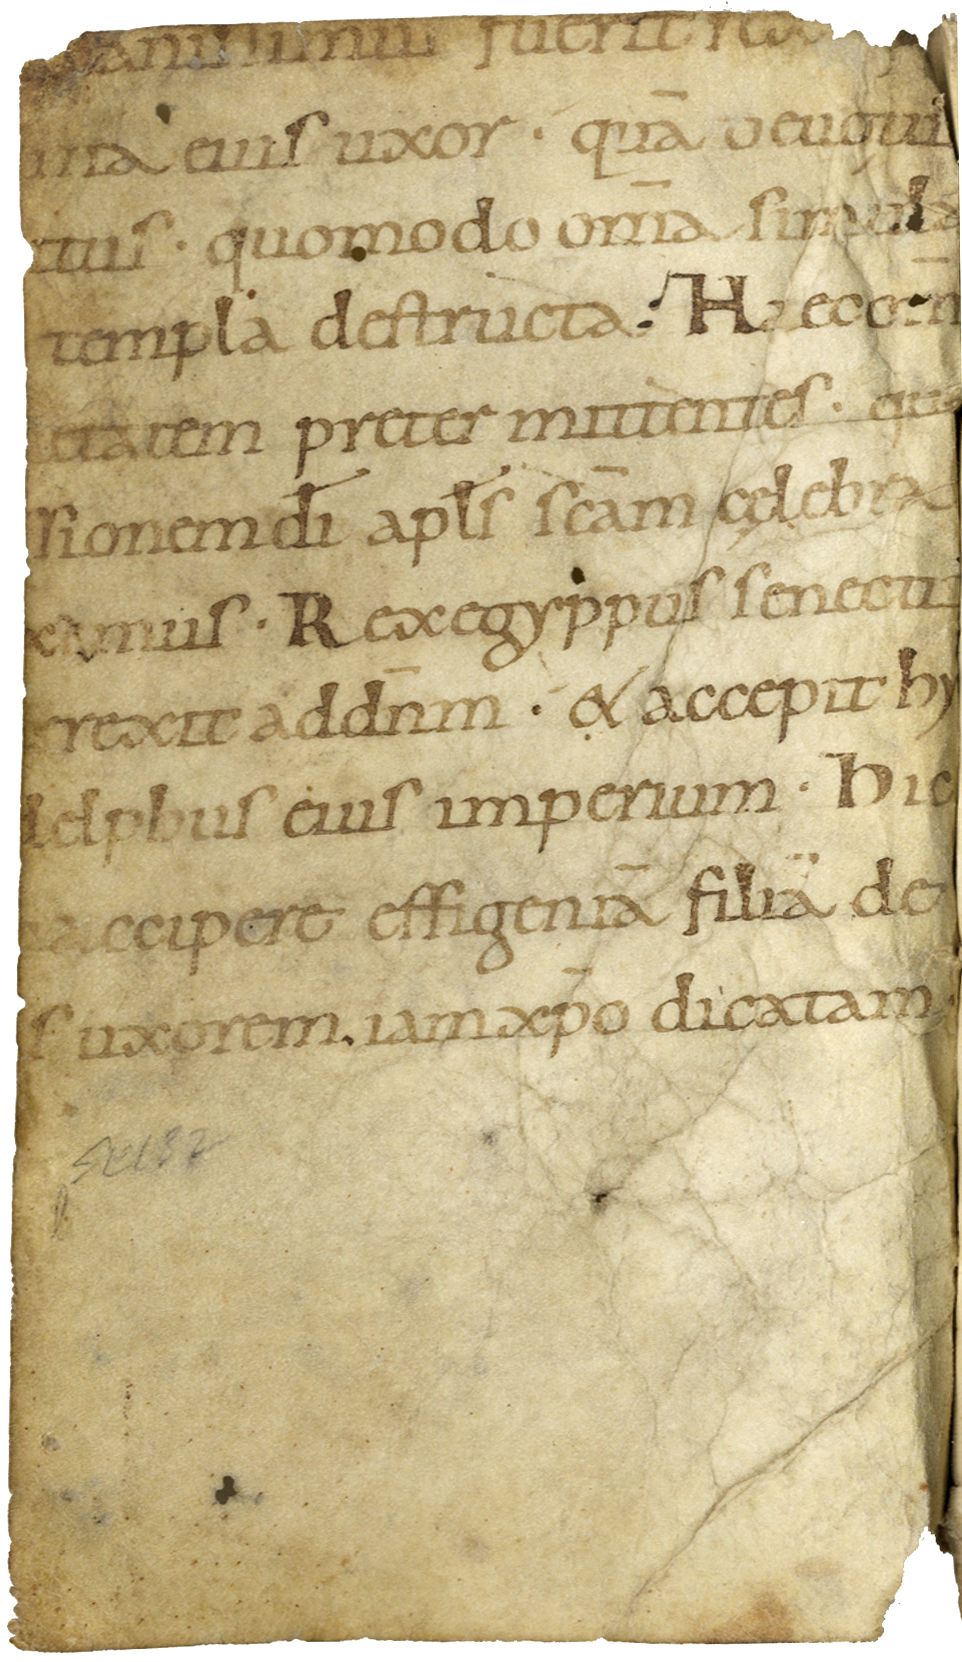 fuerit rex
eius uxor · quā
quomodo om̄a simula
templa destructa: Haec om̄
tatem preter mittentes · que
sionem di apłs scām celebra
camus · Rex egyppus senectu
rrexit addnm̄ · & accepit hy
delphus eius imperium · Hic
accipere effigeniā filia de
s uxorem. iam xp̄o dicatam ·